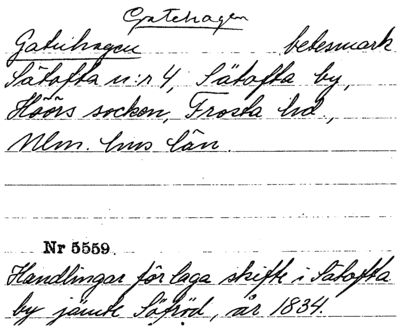 Gatehagen
Gatuhagen betesmark
Sätofta n:r 4, Sätofta by,
Höörs socken, Frosta hd,
Mlm. hus län.
Nr 5559.
Handlingar för laga skifte i Sätofta
by jämte Söfröd, år 1834.